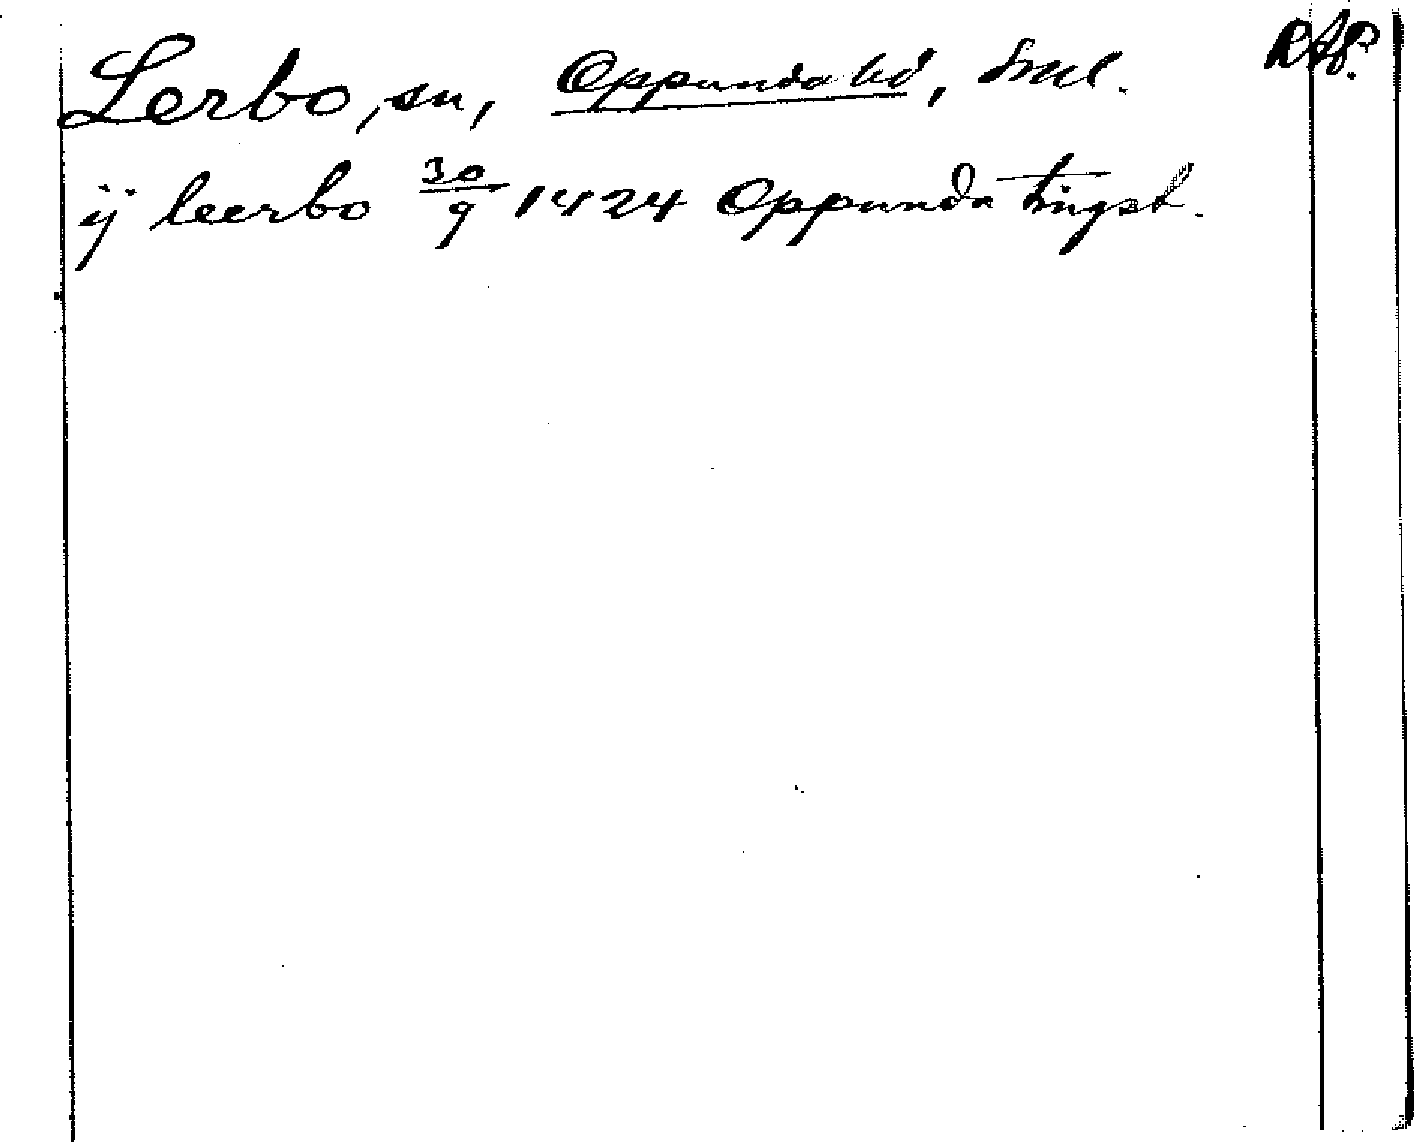 Lerbo, sn, Oppunda hd, Sml. RAP.
ÿ leerbo 30/9 1424 Oppunda tingst.